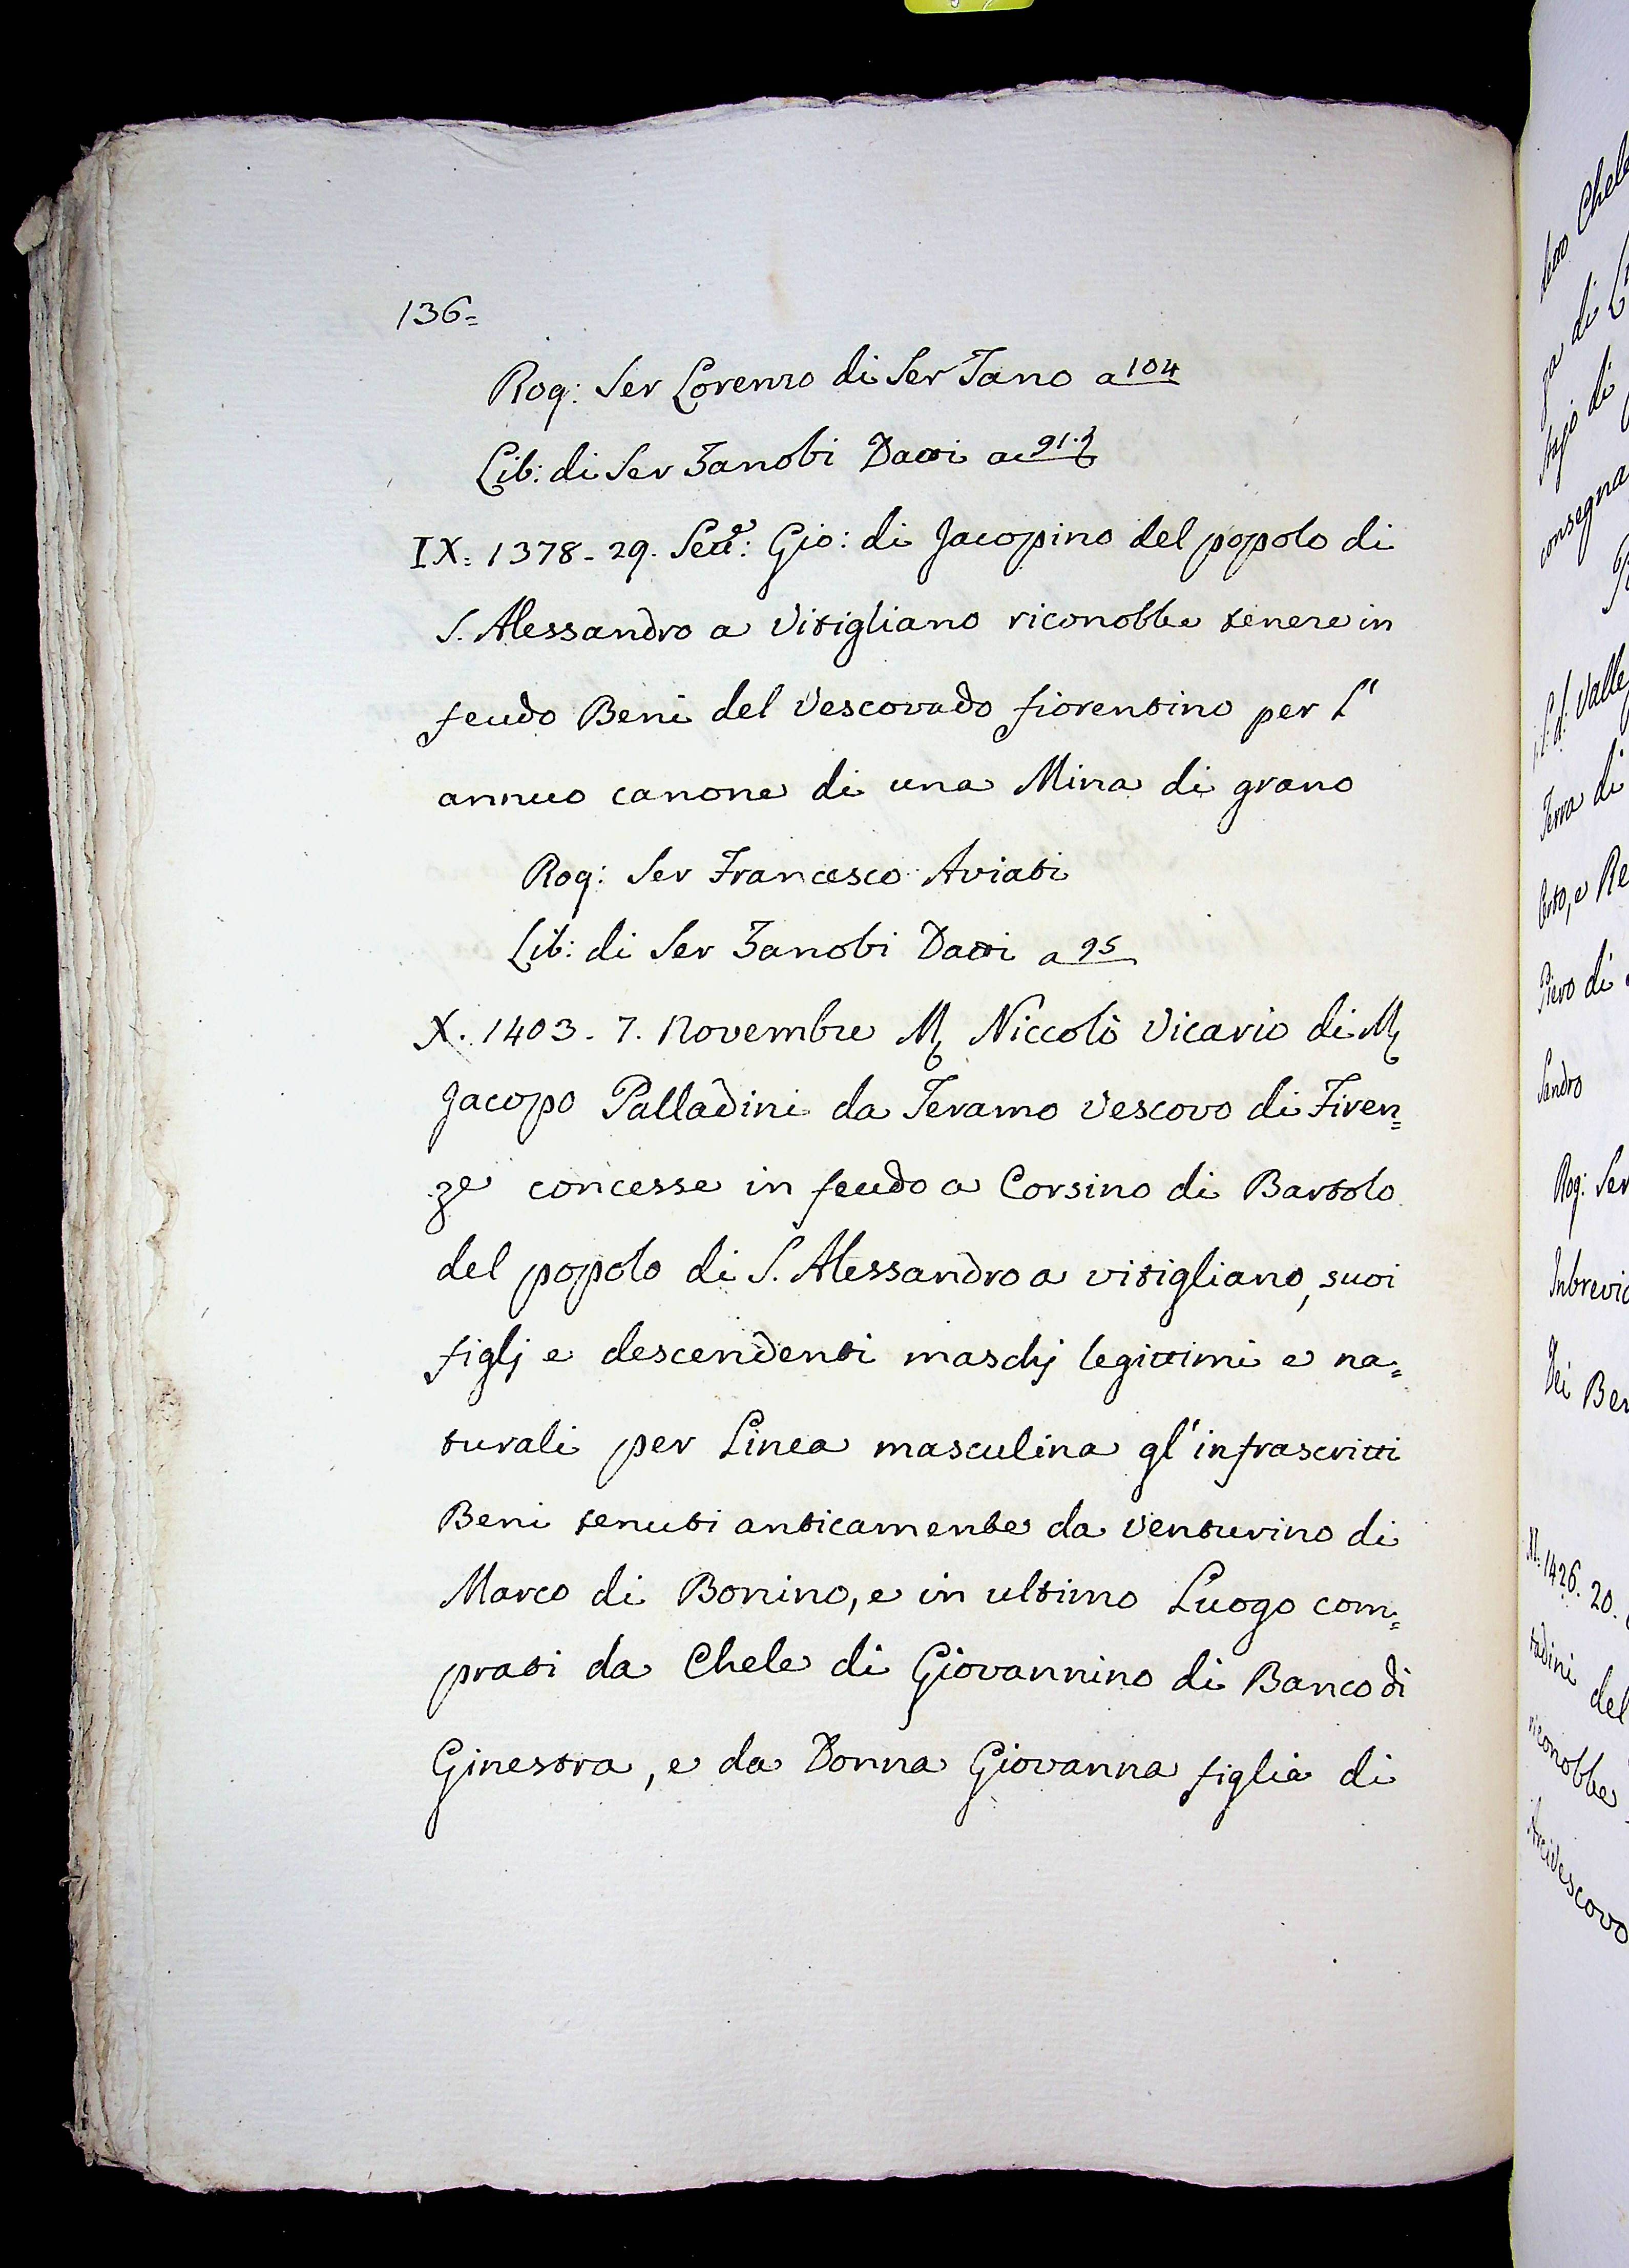 136=
Rog: Ser Lorenzo di Ser Tano a 104
Lib: di Ser Zanobi Datti a 91.
IX: 1378 - 29. Sett:e Gio: di Jacopino del popolo di
S. Alessandro a Vitigliano riconobbe tenere in
feudo Beni del Vescovado fiorentino per L'
annuo canone di una Mina di grano
Rog: Ser Francesco Aviati
Lib: di Ser Zanobi Datti a 95
X. 1403 - 7. Novembre M. Niccolò Vicario di M.
Jacopo Palladini da Teramo Vescovo di Firen=
ze concesse in feudo a Corsino di Bartolo
del popolo di S. Alessandro a vitigliano, suoi
figlj e descendenti maschj legittimi e na=
turali per Linea masculina gl'infrascritti
Beni tenuti anticamente da Venturino di
Marco di Bonino, e in ultimo Luogo com=
prati da Chele di Giovannino di Banco di
Ginestra, e da Donna Giovanna figlia di
di
consegna
Valle
Terra di
Piero di
Sandro
Rog: Ser
Dei
1426. 20.
del
riconobbe
Arcivescovo